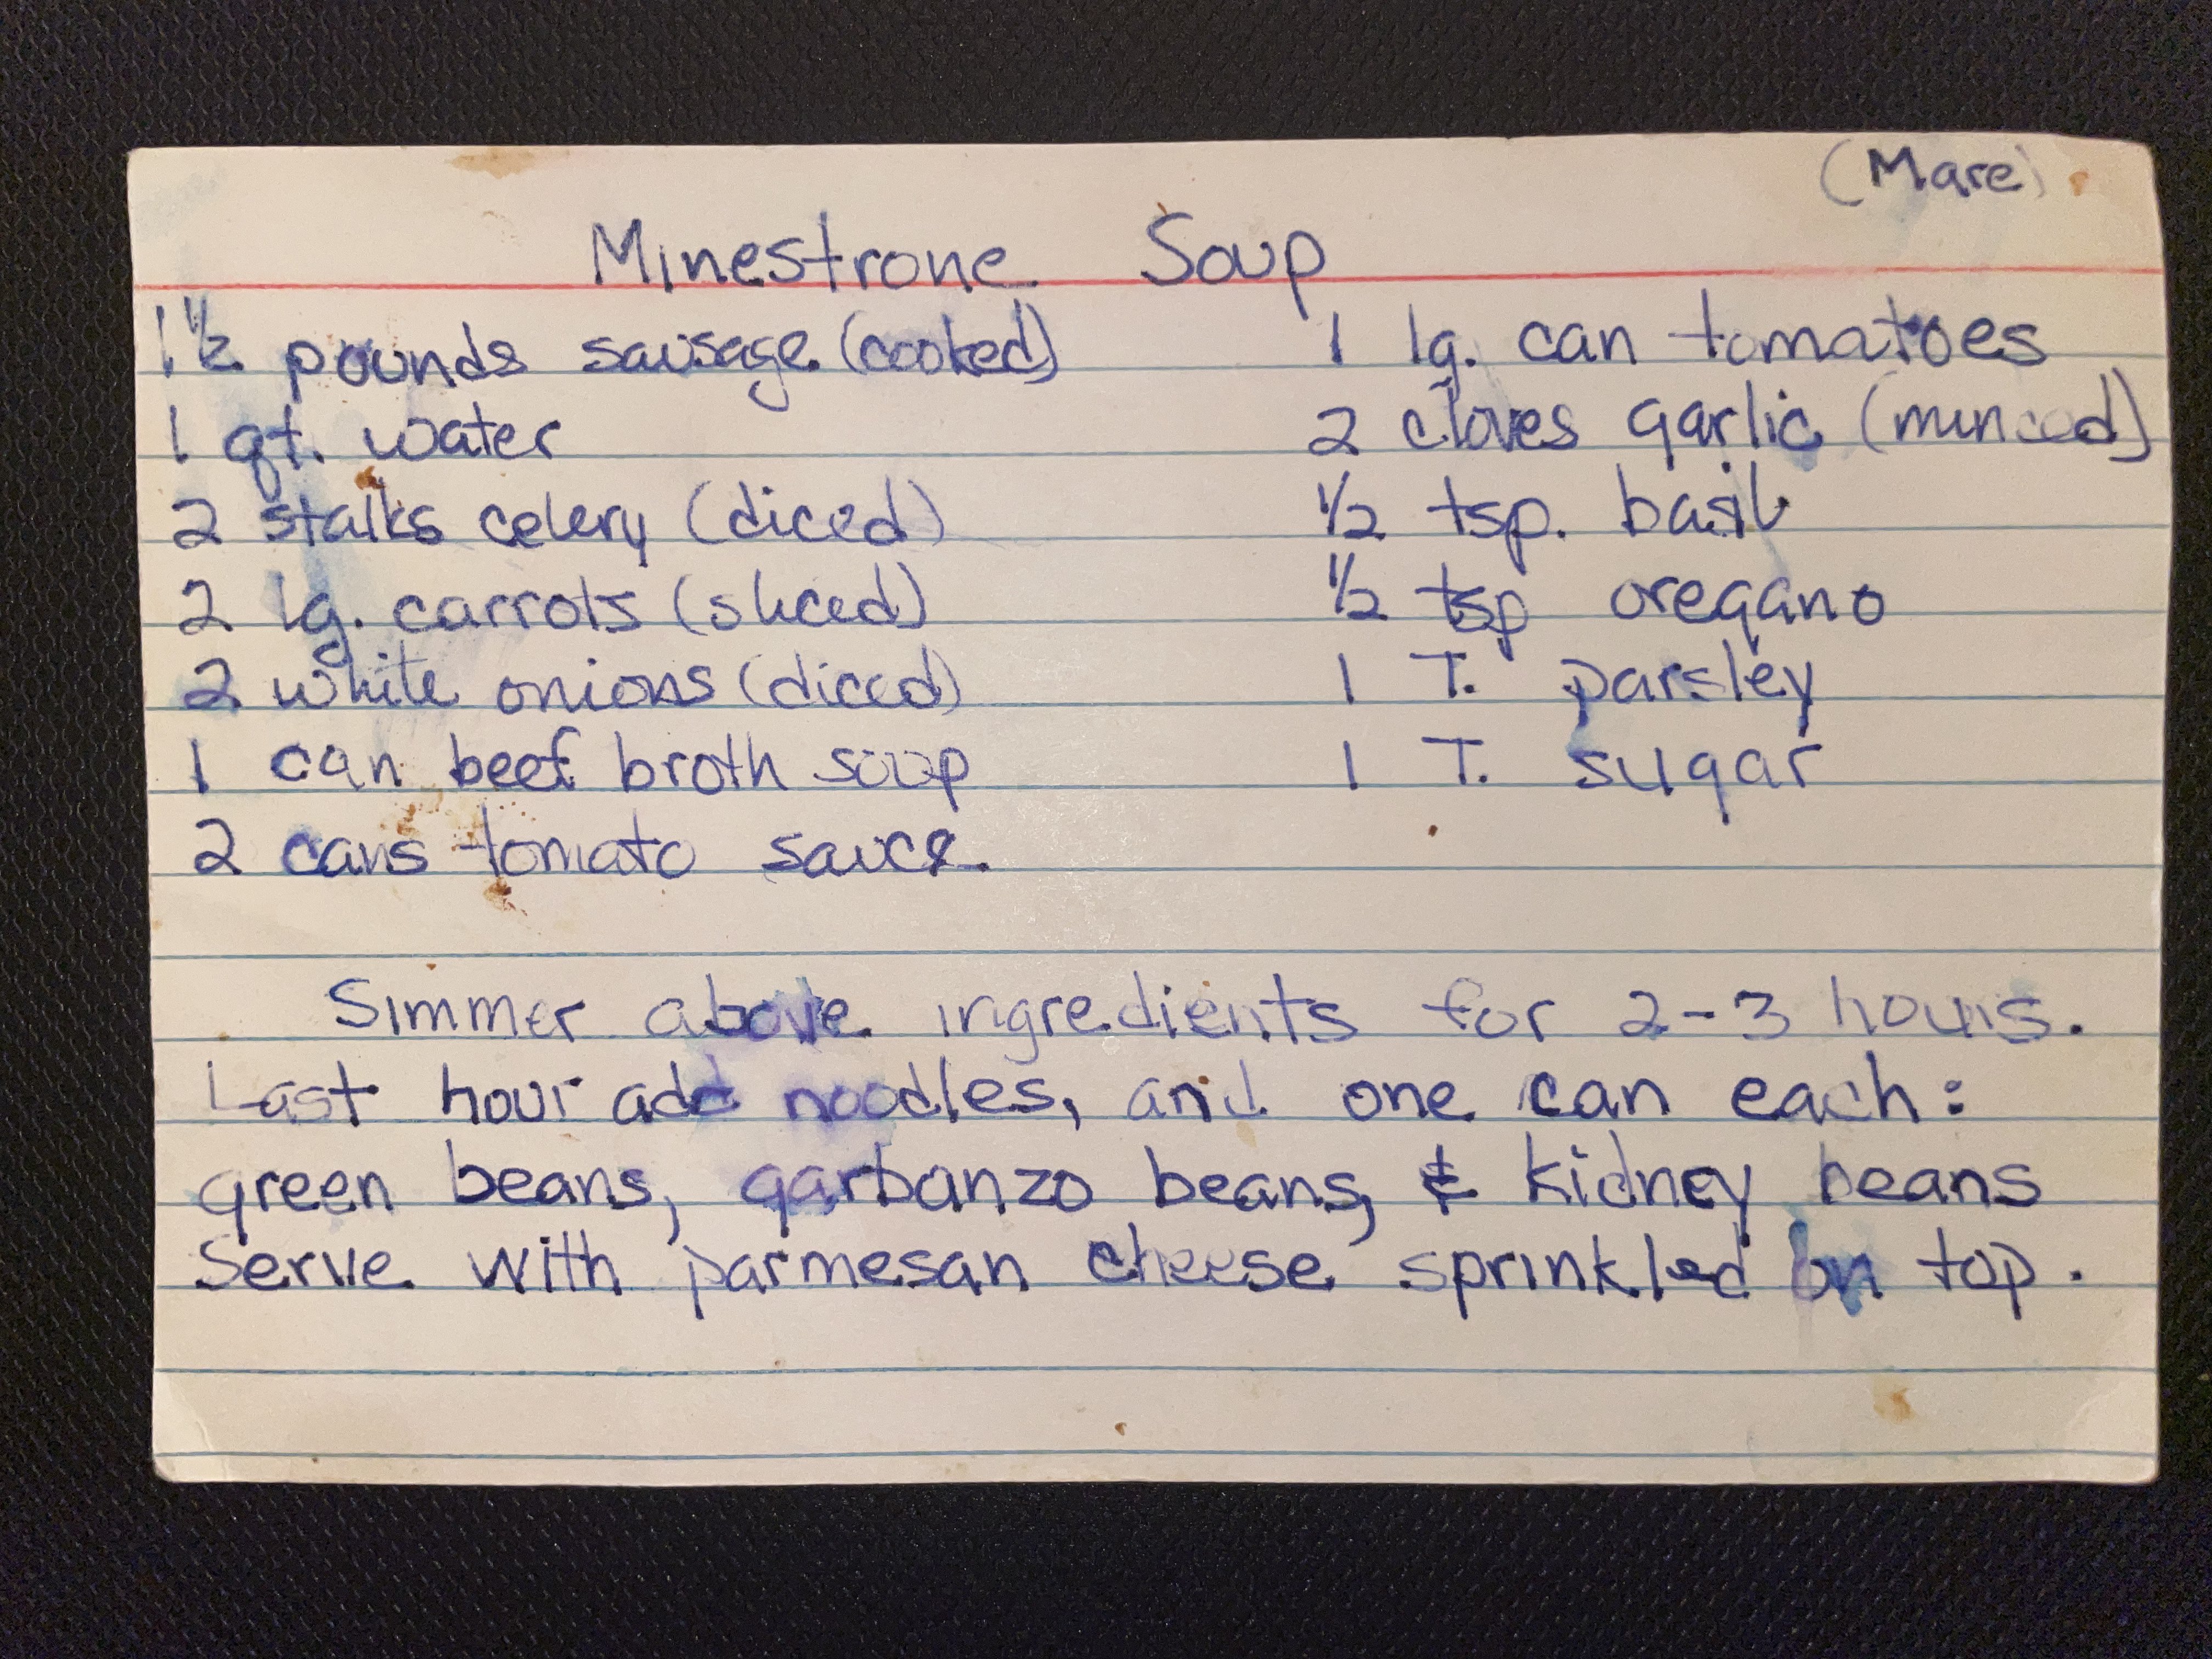 (Mare)
Minestrone Soup
1 ½ pounds sausage (cooked)
1 qt. water
2 stalks celery (diced)
2 lg. carrots (sliced)
2 white onions (diced)
1 can beef broth soup
2 cans tomato sauce.
1 lg. can tomatoes
2 cloves garlic (minced)
½ tsp. basil
½ tsp oregano
1 T. parsley
1 T. sugar
Simmer above ingredients for 2-3 hours.
Last hour add noodles, and one can each:
green beans, garbanzo beans, & kidney beans
Serve with parmesan cheese sprinkled on top.